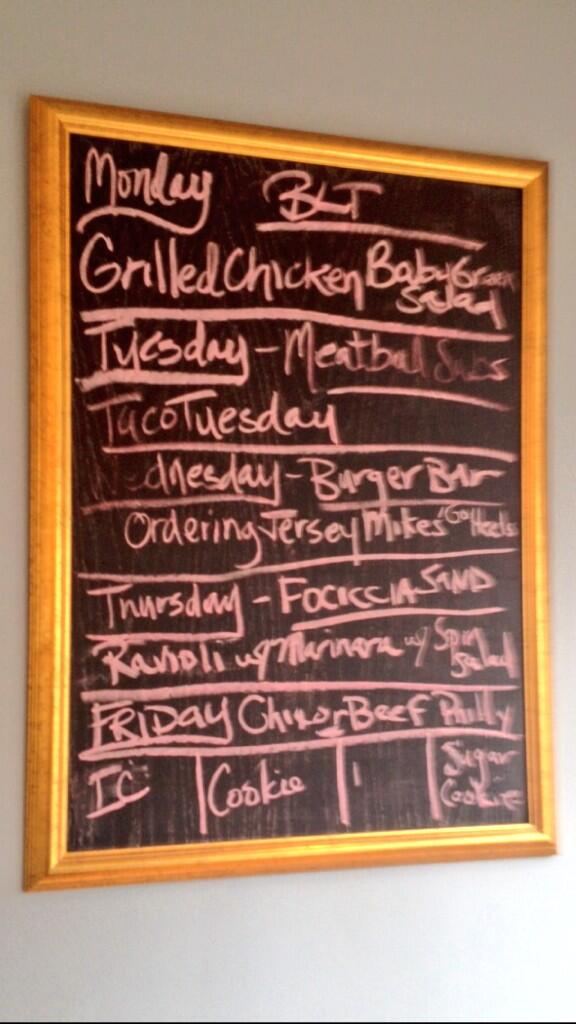 Monday BLT
Grilled Chicken Baby Green
Salad
Tuesday - Meatball Subs
Taco Tuesday
Wednesday - Burger Bar
Ordering Jersey Mikes "Go Heels
Thursday - Fociccia Sand
Ravioli w/ Marinara w/ Spin
Salad
FRIDAY Chix or Beef Philly
IC Cookie Sugar
Cookie